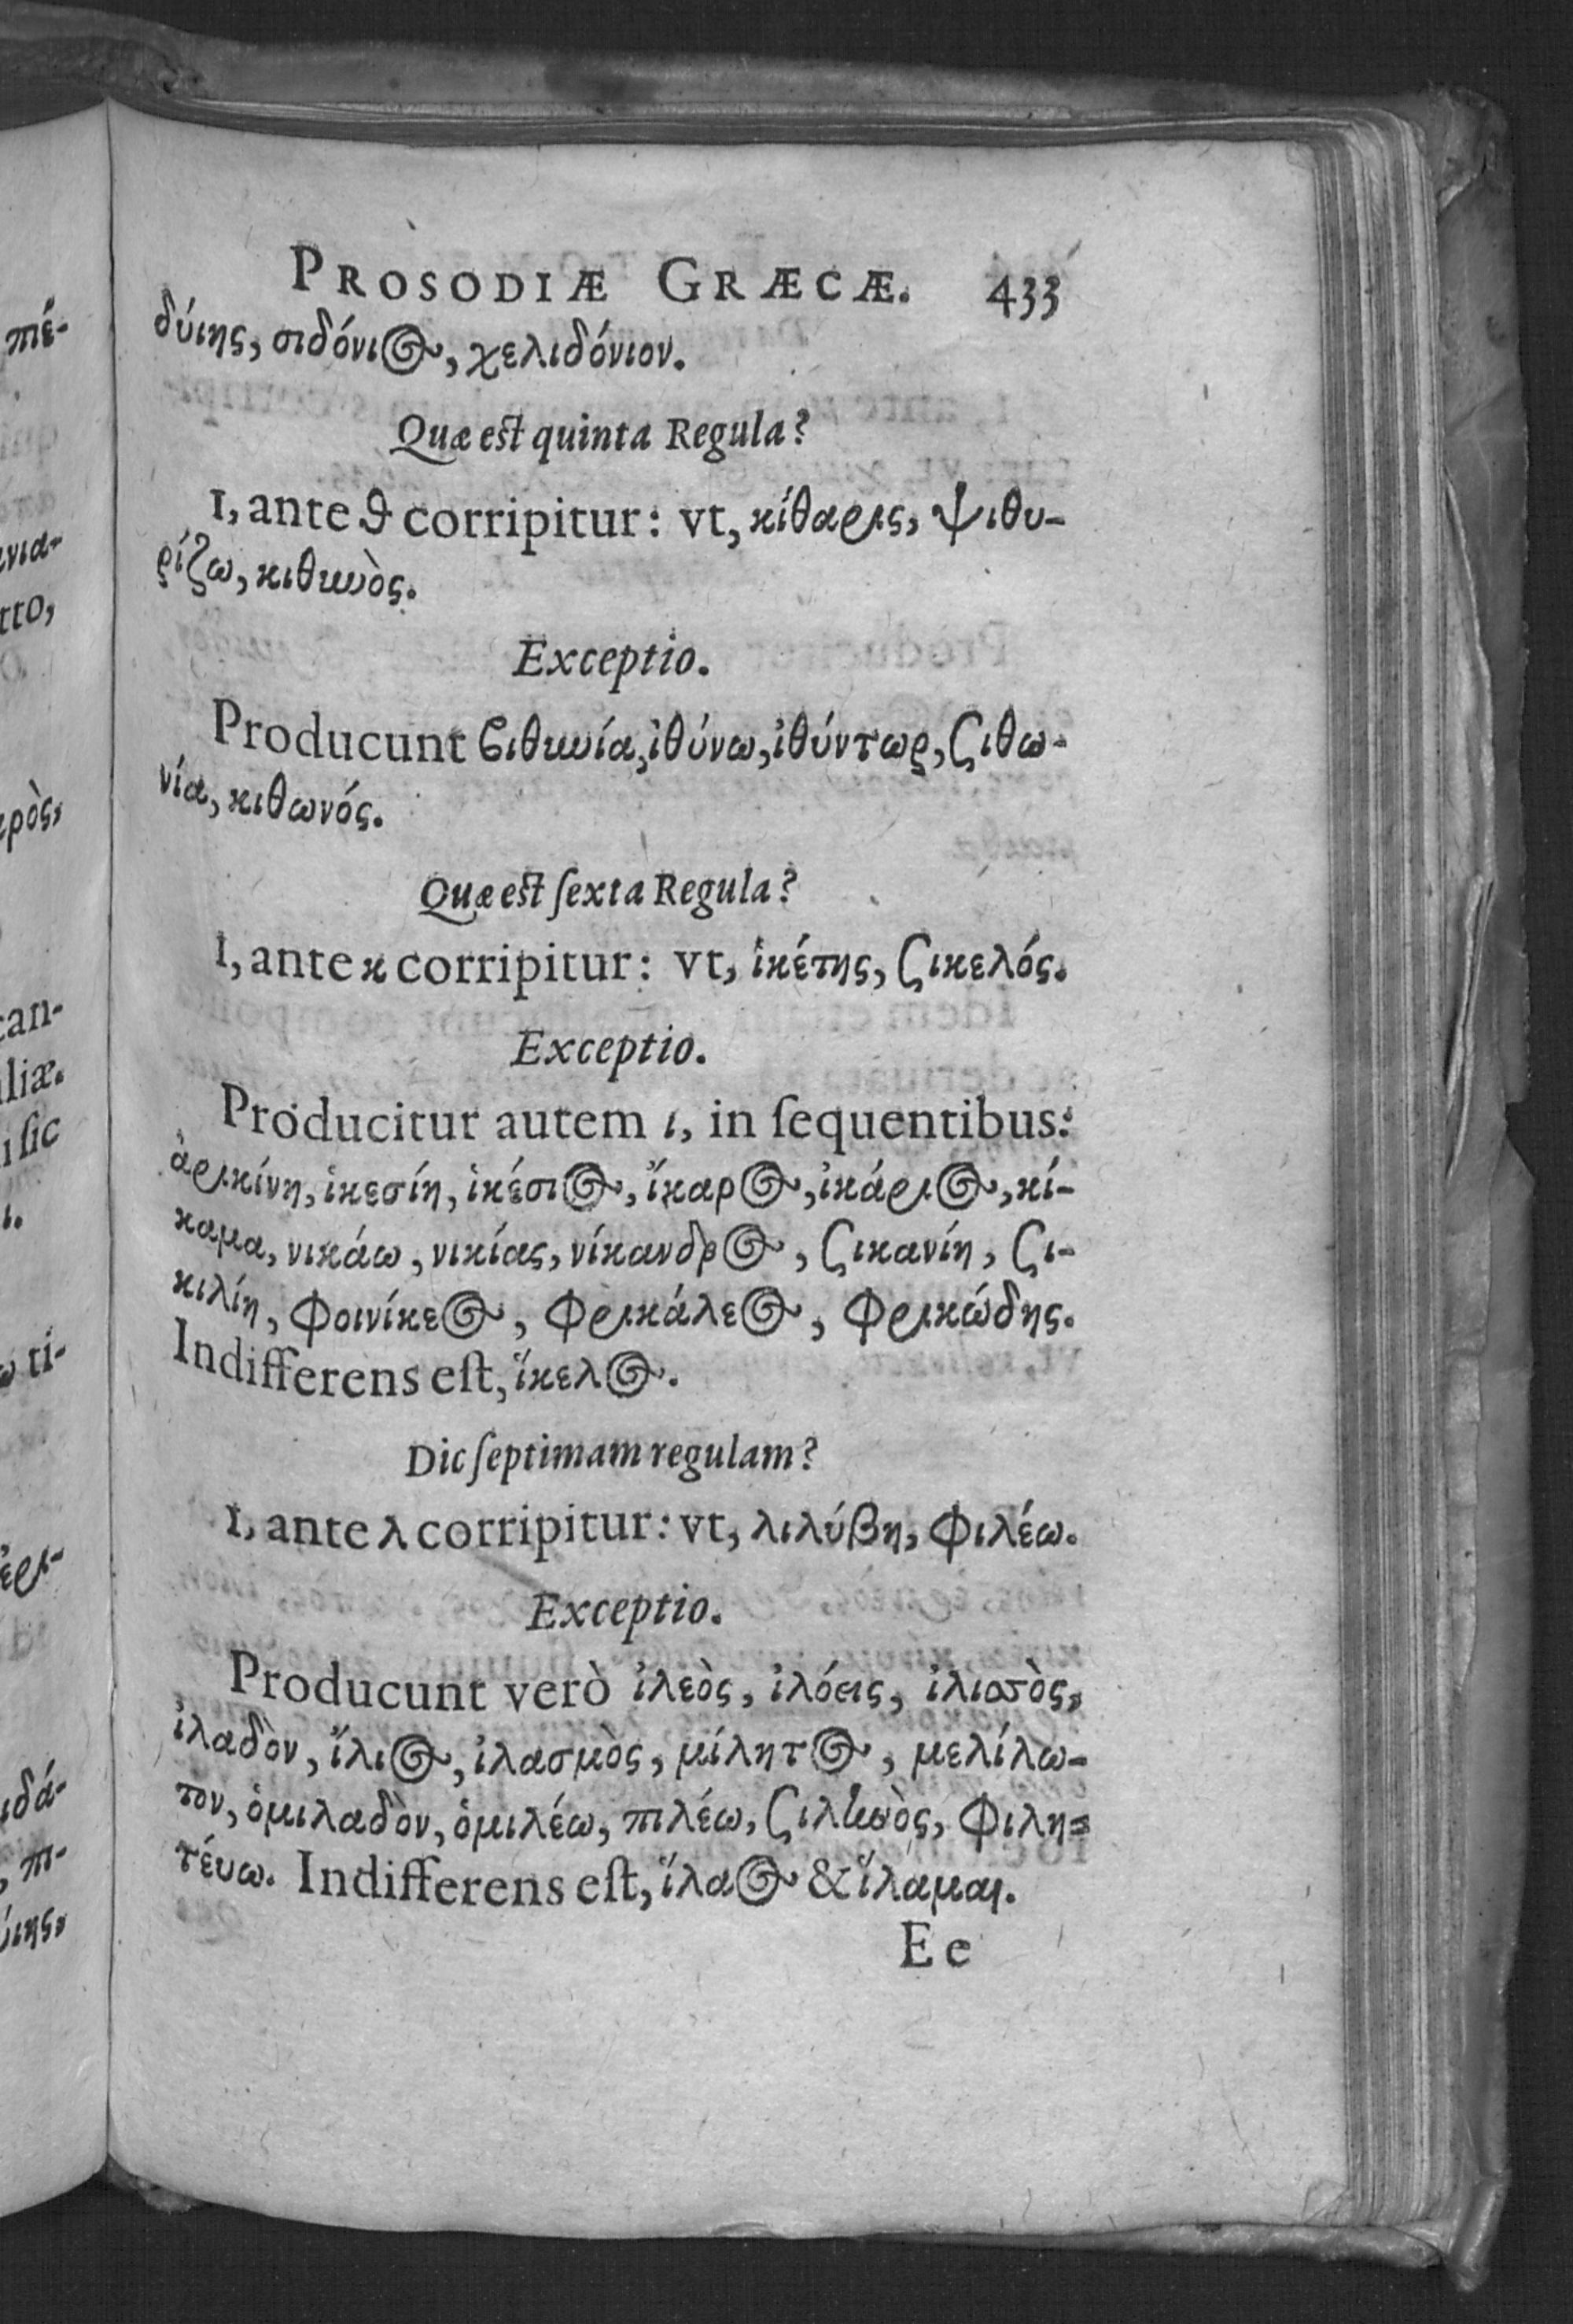 PROSODIÆ GRÆCÆ. 433
δύιης, σιδόνιος, χελιδόνιον.
Quæ est quinta Regula?
I, ante ϑ corripitur: vt, κίθαρις, ψιθυ-
ρίζω, κιθωὸς.
Exceptio.
Producunt ϐιθυνία, ἰθύνω, ἰθύντωρ, ζιθω-
νία, κιθωνός.
Quæ est ſexta Regula?
I, ante κ corripitur: vt, ἱκέτης, ζικελός.
Exceptio.
Producitur autem ι, in ſequentibus:
ἀρικίνη, ἱκεσίη, ἱκέσιος, ἴκαρος, ἰκάριος, κί-
καμα, νικάω, νικίας, νίκανδρος, ζικανίη, ζι-
κιλίη, φοινίκεος, φρικάλεος, φρικώδης.
Indifferens eſt, ἴκελος.
Dic ſeptimam regulam?
I, ante λ corripitur: vt, λιλύβη, φιλέω.
Exceptio.
Producunt verò ἰλεὸς, ἰλόεις, ἰλιστὸς,
ἰλαδὸν, ἴλιος, ἱλασμὸς, μίλητος, μελίλω-
τον, ὁμιλαδὸν, ὁμιλέω, πιλέω, ζιληνὸς, φιλη-
τέυω. Indifferens eſt, ἵλαος & ἵλαμαι.
Ee